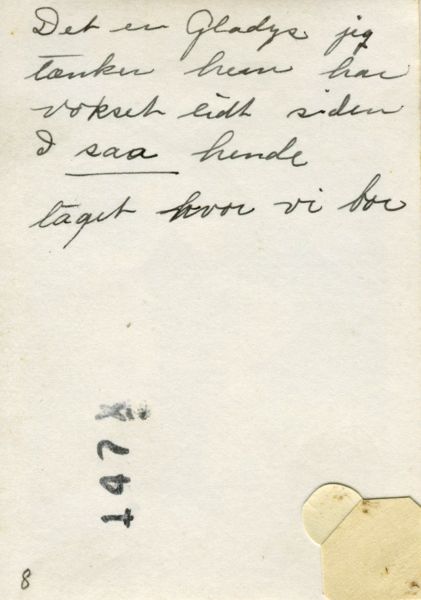 Det er Gladys jeg
tænker hun har
vokset lidt siden
I saa hende
taget hvor vi bor
147
8